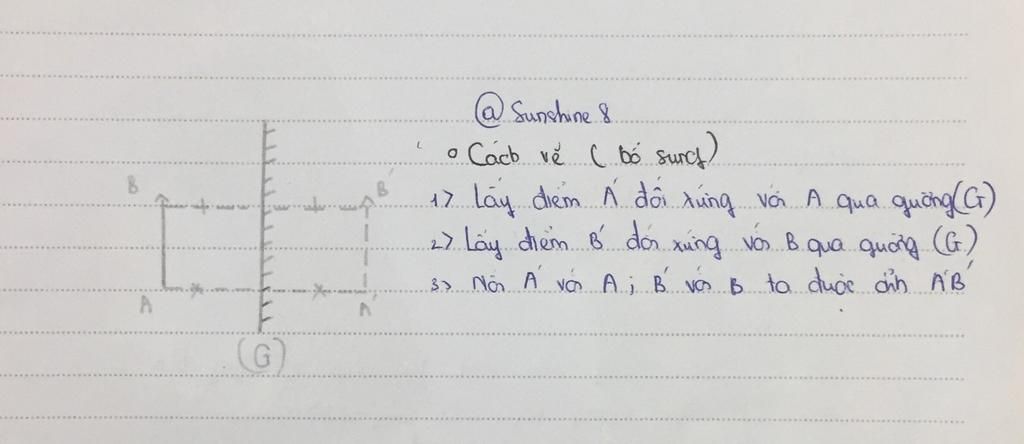 @ Sunshine 8
o Cách vẽ ( bổ sung)
1> Lấy điểm A' đối xứng với A qua gương (G)
2> Lấy điểm B' đối xứng với B qua gương (G)
3> Nối A' với A ; B' với B ta được ảnh A'B'
B
B'
A
A'
(G)